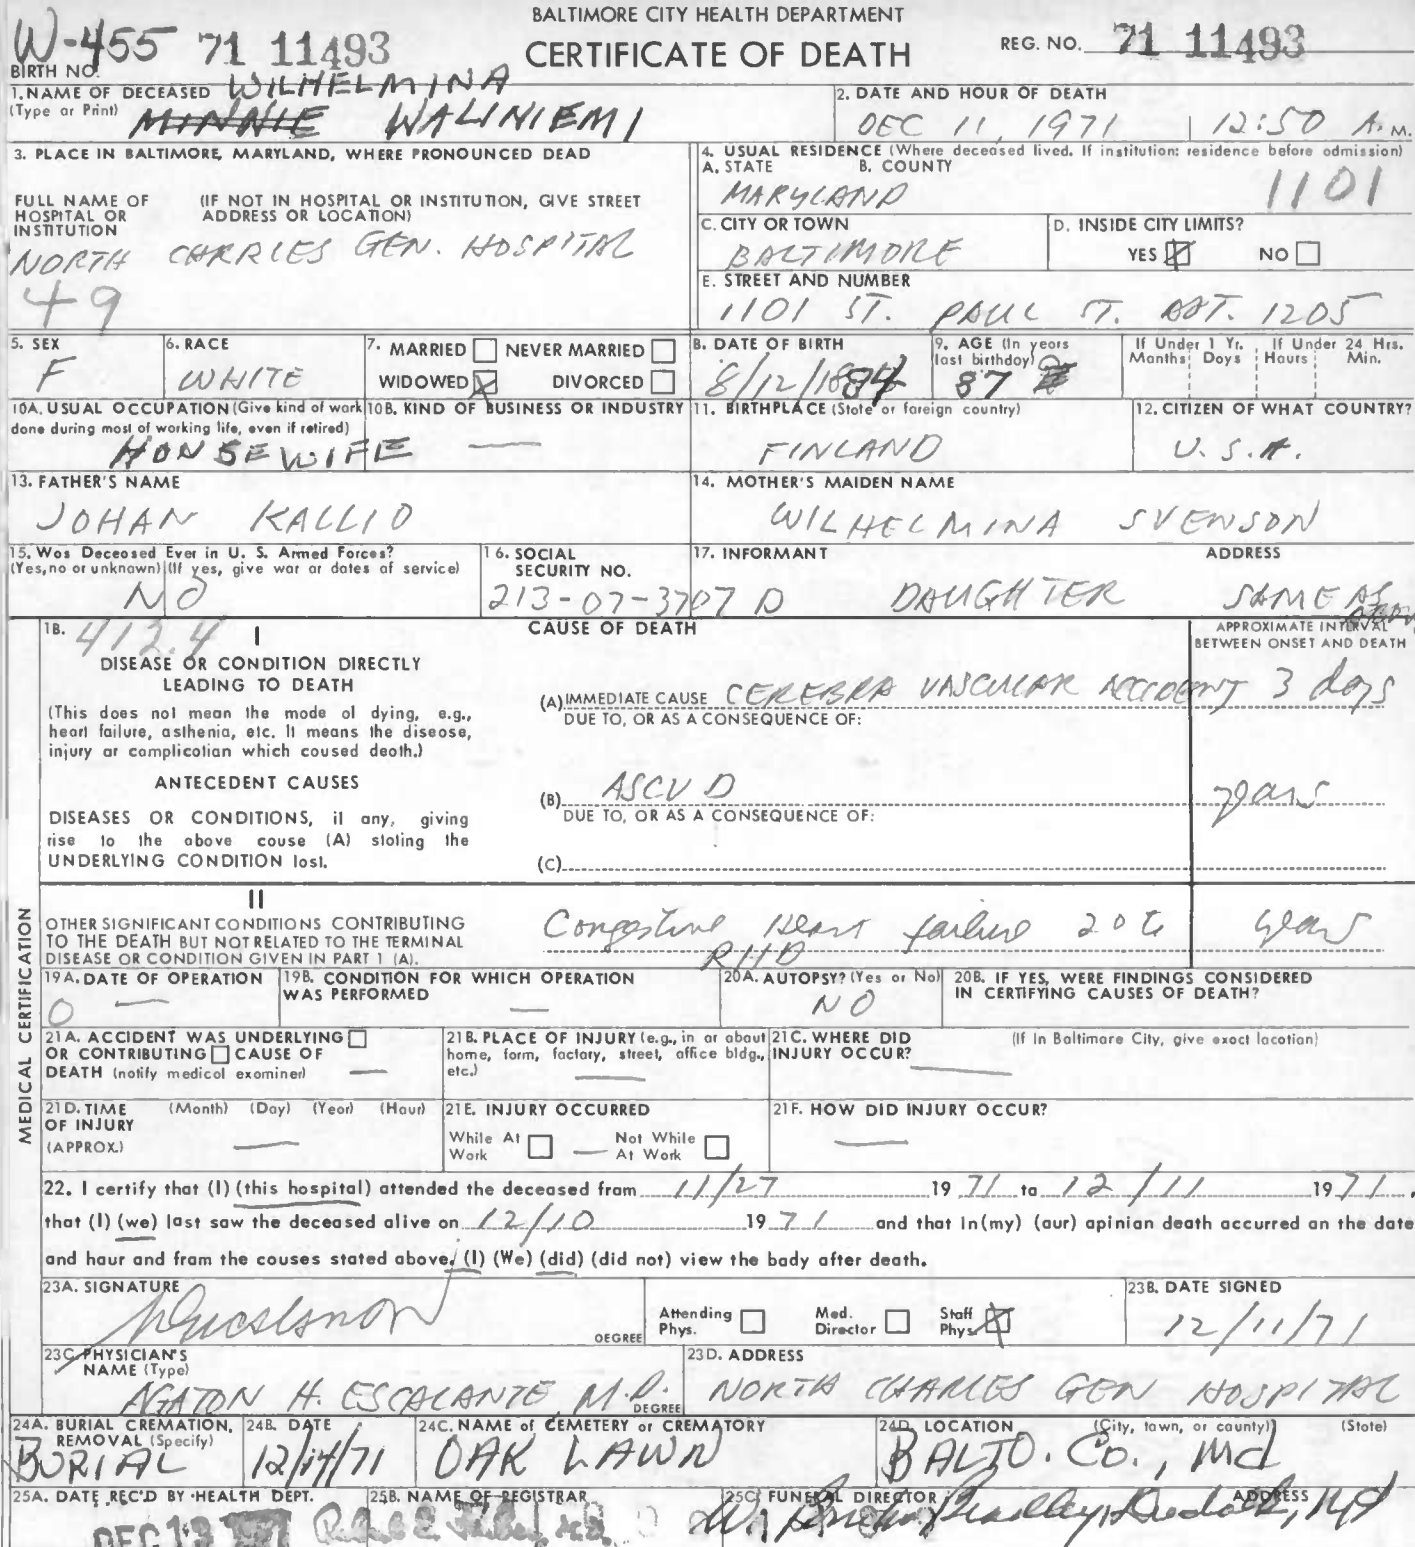 BALTIMORE CITY HEALTH DEPARTMENT
CERTIFICATE OF DEATH
W-455 71 11493
REG. NO. 71 11493
BIRTH NO.
1. NAME OF DECEASED WILHELMINA
(Type or Print) MINNIE WALINIEMI
2. DATE AND HOUR OF DEATH
DEC 11, 1971 12:50 A.M.
3. PLACE IN BALTIMORE, MARYLAND, WHERE PRONOUNCED DEAD
FULL NAME OF HOSPITAL OR INSTITUTION
(IF NOT IN HOSPITAL OR INSTITUTION, GIVE STREET ADDRESS OR LOCATION)
NORTH CHARLES GEN. HOSPITAL
49
4. USUAL RESIDENCE (Where deceased lived. If institution: residence before admission)
A. STATE B. COUNTY
MARYLAND 1101
C. CITY OR TOWN
BALTIMORE
D. INSIDE CITY LIMITS?
YES NO
E. STREET AND NUMBER
1101 ST. PAUL ST. APT. 1205
5. SEX
F
6. RACE
WHITE
7. MARRIED NEVER MARRIED
WIDOWED DIVORCED
8. DATE OF BIRTH
8/12/1884
9. AGE (In years last birthday)
87
If Under 1 Yr. Months Days
If Under 24 Hrs. Hours Min.
10A. USUAL OCCUPATION (Give kind of work done during most of working life, even if retired)
HOUSEWIFE
10B. KIND OF BUSINESS OR INDUSTRY
—
11. BIRTHPLACE (State or foreign country)
FINLAND
12. CITIZEN OF WHAT COUNTRY?
U.S.A.
13. FATHER'S NAME
JOHAN KALLIO
14. MOTHER'S MAIDEN NAME
WILHELMINA SVENSON
15. Was Deceased Ever in U. S. Armed Forces?
(Yes, no or unknown) (If yes, give war or dates of service)
NO
16. SOCIAL SECURITY NO.
213-07-3707 D
17. INFORMANT ADDRESS
DAUGHTER SAME AS
18. 412.4 I
DISEASE OR CONDITION DIRECTLY
LEADING TO DEATH
(This does not mean the mode of dying, e.g.,
heart failure, asthenia, etc. It means the disease,
injury or complication which caused death.)
ANTECEDENT CAUSES
DISEASES OR CONDITIONS, if any, giving
rise to the above cause (A) stating the
UNDERLYING CONDITION last.
CAUSE OF DEATH
APPROXIMATE INTERVAL
BETWEEN ONSET AND DEATH
(A) IMMEDIATE CAUSE CEREBRA VASCULAR ACCIDENT 3 days
DUE TO, OR AS A CONSEQUENCE OF:
(B) ASCVD years
DUE TO, OR AS A CONSEQUENCE OF:
(C)
II
OTHER SIGNIFICANT CONDITIONS CONTRIBUTING
TO THE DEATH BUT NOT RELATED TO THE TERMINAL
DISEASE OR CONDITION GIVEN IN PART 1 (A).
Congestive Heart failure 20 to years
RHD
19A. DATE OF OPERATION
0 —
19B. CONDITION FOR WHICH OPERATION WAS PERFORMED
—
20A. AUTOPSY? (Yes or No)
NO
20B. IF YES, WERE FINDINGS CONSIDERED IN CERTIFYING CAUSES OF DEATH?
21A. ACCIDENT WAS UNDERLYING
OR CONTRIBUTING CAUSE OF
DEATH (notify medical examiner) —
21B. PLACE OF INJURY (e.g., in or about home, farm, factory, street, office bldg., etc.) —
21C. WHERE DID INJURY OCCUR? (If in Baltimore City, give exact location)
—
21D. TIME OF INJURY (Month) (Day) (Year) (Hour)
(APPROX.) —
21E. INJURY OCCURRED
While At Work — Not While At Work
21F. HOW DID INJURY OCCUR?
—
MEDICAL CERTIFICATION
22. I certify that (I) (this hospital) attended the deceased from 11/27 1971 to 12/11 1971,
that (I) (we) last saw the deceased alive on 12/10 1971 and that in (my) (our) opinian death accurred an the date
and haur and fram the causes stated above. (I) (We) (did) (did not) view the body after death.
23A. SIGNATURE
DEGREE
Attending Phys. Med. Director Staff Phys.
23B. DATE SIGNED
12/11/71
23C. PHYSICIAN'S NAME (Type)
AGATON H. ESCALANTE, M.D. DEGREE
23D. ADDRESS
NORTH CHARLES GEN HOSPITAL
24A. BURIAL CREMATION, REMOVAL (Specify)
BURIAL
24B. DATE
12/14/71
24C. NAME of CEMETERY or CREMATORY
OAK LAWN
24D. LOCATION (City, town, or county) (State)
BALTO. Co., Md
25A. DATE REC'D BY HEALTH DEPT.
DEC 13
25B. NAME OF REGISTRAR
25C. FUNERAL DIRECTOR ADDRESS